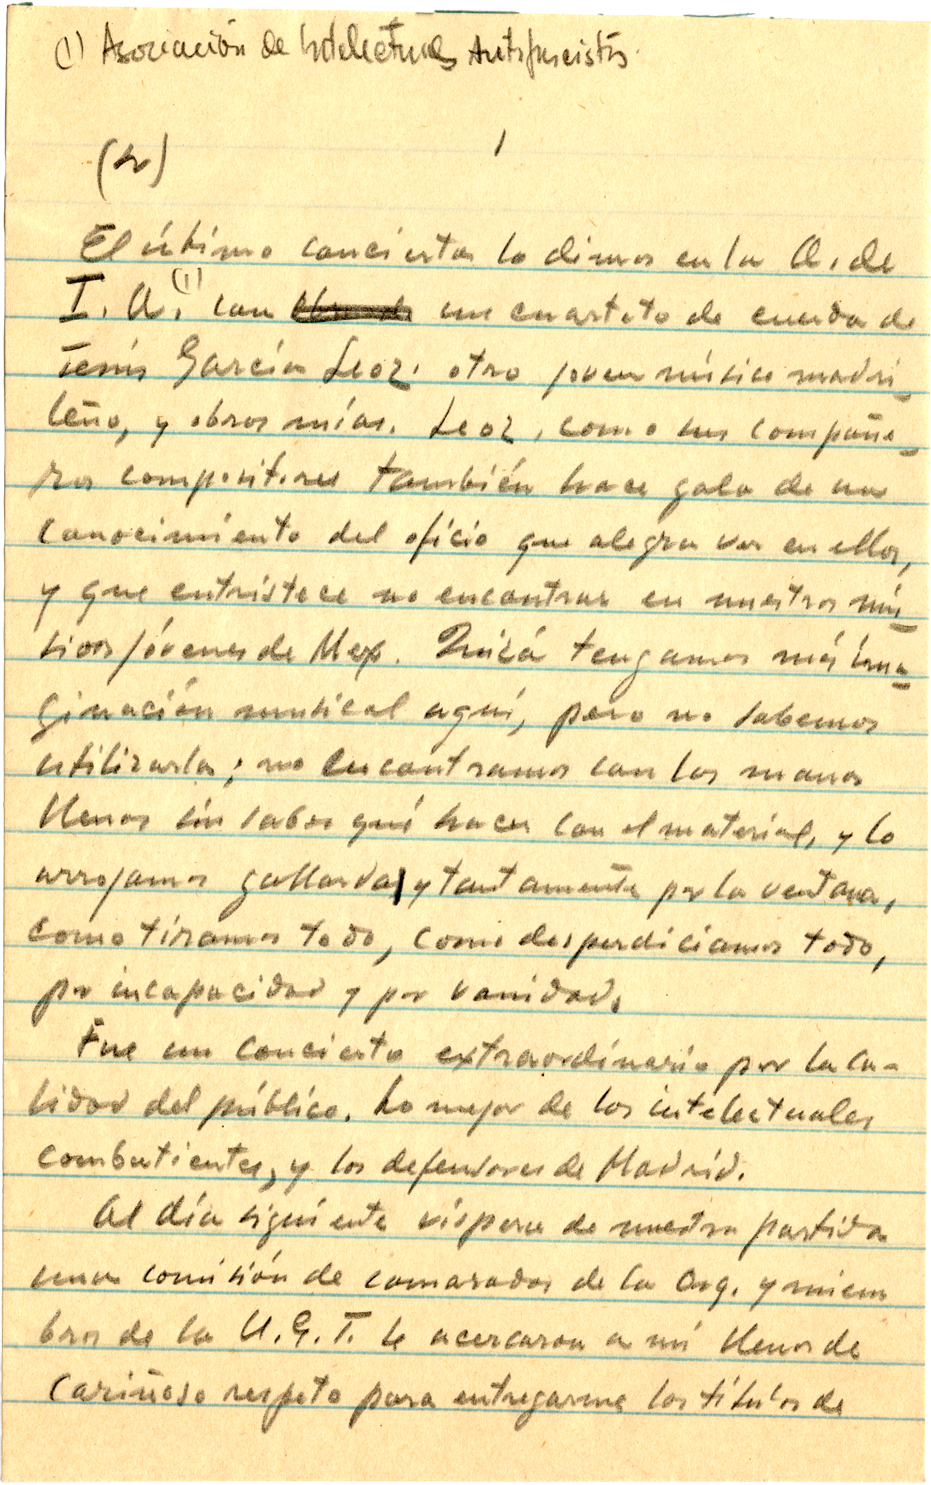 (1) Asociación de Intelectuales Antifascistas.
1
El último concierto lo dimos en la A. de
I. A.(1) con un cuarteto de cuerda de
Jesús García Leoz. otro joven músico madri
leño, y obras mías. Leoz, como sus compañe-
ros compositores también hace gala de un
conocimiento del oficio que alegra ver en ellos,
y que entristece no encontrar en nuestros mú-
sicos jóvenes de Mex. Quizá tengamos más ima-
ginación musical aquí, pero no sabemos
utilizarla; nos encontramos con las manos
llenas sin saber qué hacer con el material, y lo
arrojamos gallarda y tontamente por la ventana,
como tiramos todo, como desperdiciamos todo,
por incapacidad y por vanidad.
Fue un concierto extraordinario por la ca-
lidad del público. Lo mejor de los intelectuales
combatientes, y los defensores de Madrid.
Al día siguiente víspera de nuestra partida
una comisión de camaradas de la Org. y miem
bros de la U.G.T. se acercaron a mí llenos de
cariñoso respeto para entregarme los títulos de